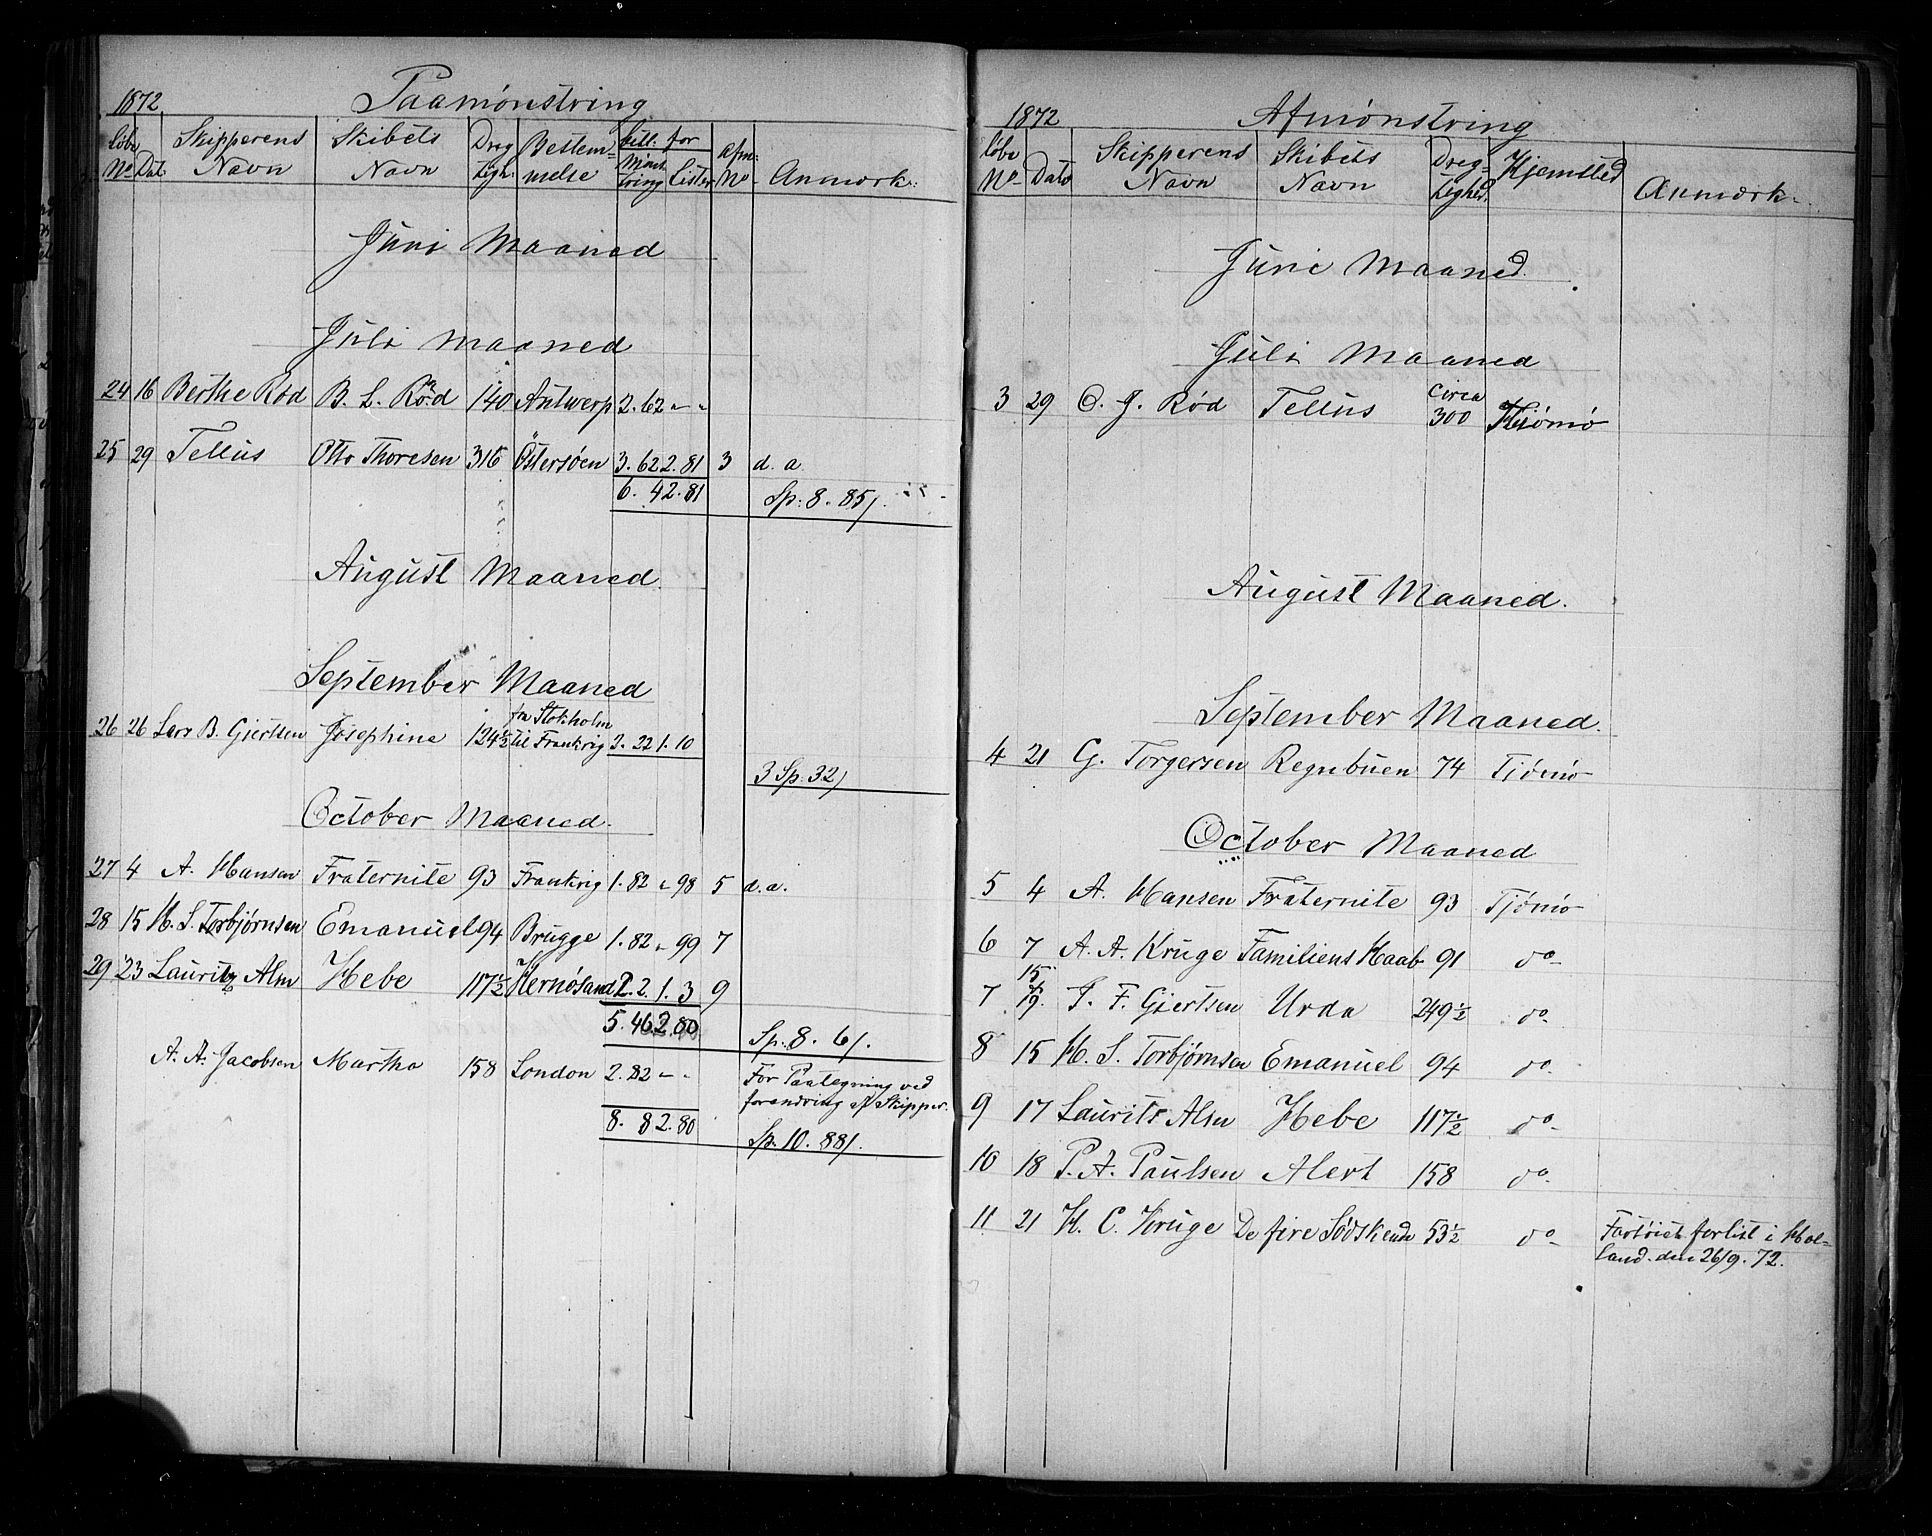 1872 Paamønstring
Löbe No Dat. Skipperens Navn Skibets Navn Dræg- tigh. Bestem- melse bill. for Mønst- tring Lister Afm: No Anmærk:
Juni Maaned
Juli Maaned
24 16 Berthe Rød B. L. Rød 140 Antwerp 2. 62 " "
25 29 Tellus Otto Thoresen 316 Östersøen 3. 62 2. 81 3 d. a.
6. 4 2. 81 Sp: 8. 85/.
August Maaned
September Maaned
26 26 Lars B. Gjertsen Josephine 124½ fra Stokholm til Frankrig 2. 22 1. 10
3 Sp. 32/
October Maaned.
27 4 A. Hansen Fraternite 93 Frankrig 1. 82 " 98 5 d. a.
28 15 H. S. Torbjørnsen Emanuel 94 Brugge 1. 82 " 99 7
29 23 Lauritz Alm Hebe 117½ Hernøsand 2. 2. 1. 3 9
5. 46. 2. 80 Sp. 8. 6/.
A. A. Jacobsen Martha 158 London 2. 82 " " For Paategning ved forandring af Skipper.
8. 8 2. 80 Sp. 10. 88/.
1872 Afmønstring
Löbe No Dato Skipperens Navn Skibets Navn Dræg- tighed. Hjemsted Anmærk.
Juni Maaned.
Juli Maaned
3 29 O. J. Rød Tellus circa 300 Tjømø
August Maaned.
September Maaned.
4 21 G. Torgersen Regnbuen 74 Tjømø
October Maaned
5 4 A. Hansen Fraternite 93 Tjømø
6 7 A. A. Kruge Familiens Haab 91 do
7 15/19. J. F. Gjertsen Urda 249½ do
8 15 H. S. Torbjørnsen Emanuel 94 do
9 17 Laurits Alm Hebe 117½ do
10 18 P. A. Paulsen Alert 158 do
11 21 H. C. Kruge De fire Södskende 53½ do Fartöiet forlist i Hol-
land. den 26/9. 72.